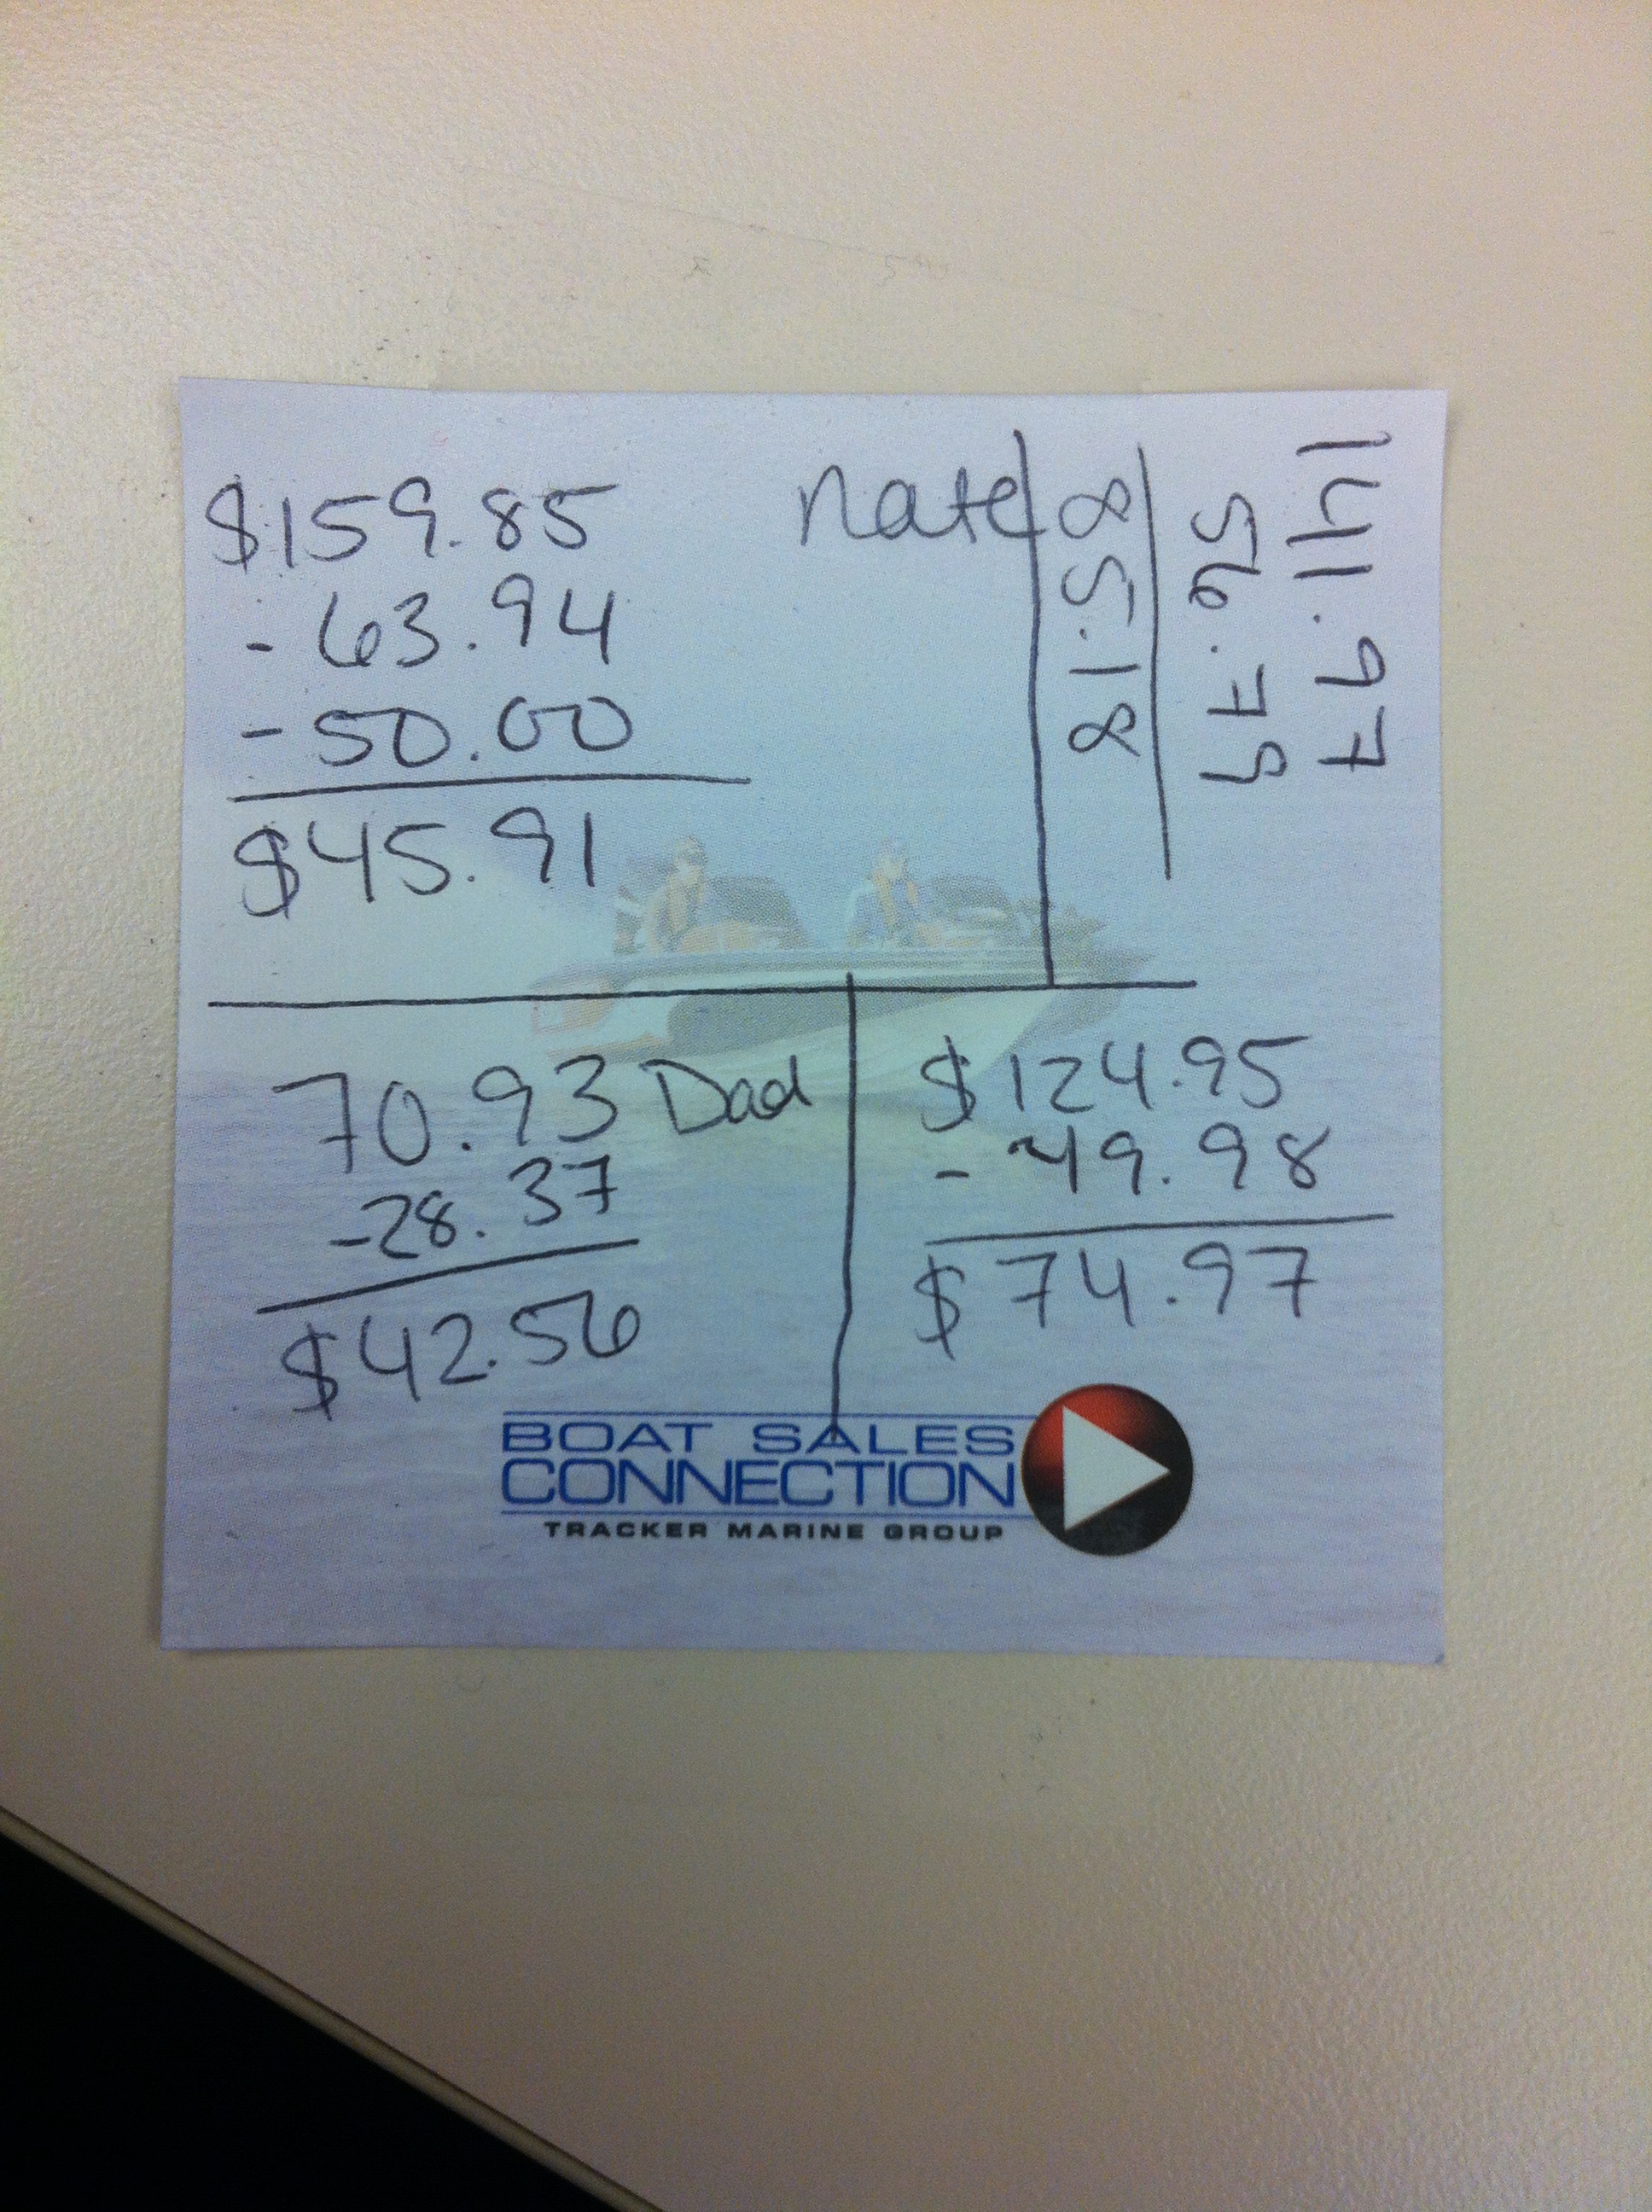 $159.85
- 63.94
- 50.00
$45.91
nate
141.97
56.79
85.18
70.93 Dad
-28.37
$42.56
$124.95
- 49.98
$74.97
BOAT SALES
CONNECTION
TRACKER MARINE GROUP